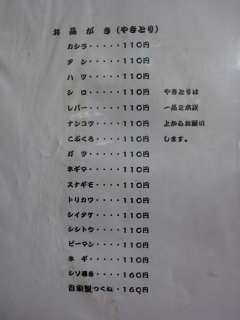 お品がき(やきとり)
カシラ・・・・・110円
タン・・・・・・110円
ハツ・・・・・・110円
シロ・・・・・・110円
レバー・・・・・110円
ナンコツ・・・・110円
こぶくろ・・・・110円
ガツ・・・・・・110円
ネギマ・・・・・110円
スナギモ・・・・110円
トリカワ・・・・110円
シイタケ・・・・110円
シシトウ・・・・110円
ピーマン・・・・110円
ネギ・・・・・・110円
シソ巻き・・・・160円
自家製つくね・・160円
やきとりは
一品2本以
上からお願い
します。